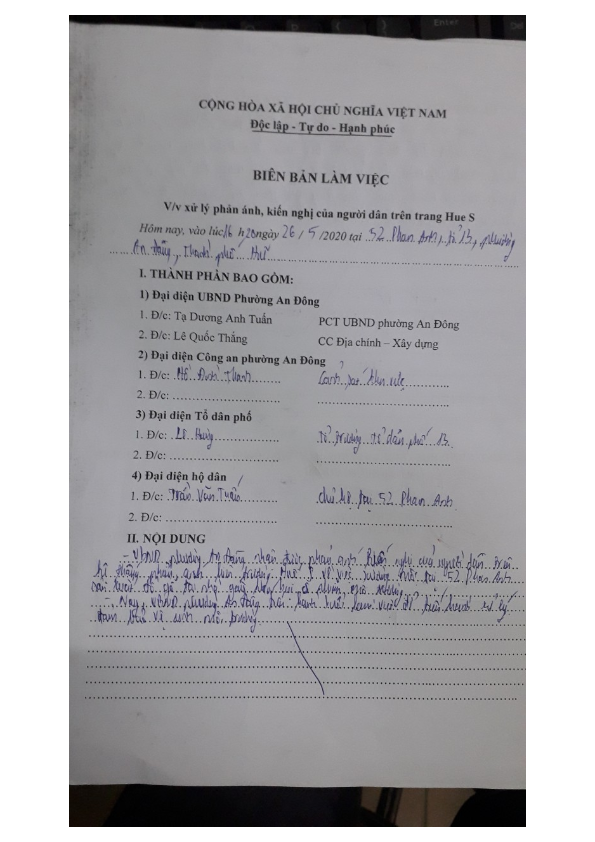 Enter
CỘNG HÒA XÃ HỘI CHỦ NGHĨA VIỆT NAM
Độc lập - Tự do - Hạnh phúc
BIÊN BẢN LÀM VIỆC
V/v xử lý phản ánh, kiến nghị của người dân trên trang Hue S
Hôm nay, vào lúc 16 h 20 ngày 26 / 5 /2020 tại 52 Phan Anh, tổ 13, phường
An Đông, Thành phố Huế
I. THÀNH PHẦN BAO GỒM:
1) Đại diện UBND Phường An Đông
1. Đ/c: Tạ Dương Anh Tuấn PCT UBND phường An Đông
2. Đ/c: Lê Quốc Thắng CC Địa chính – Xây dựng
2) Đại diện Công an phường An Đông
1. Đ/c: Hồ Đình Thanh Cảnh sát khu vực
2. Đ/c:
3) Đại diện Tổ dân phố
1. Đ/c: Lê Hùng Tổ trưởng tổ dân phố 13
2. Đ/c:
4) Đại diện hộ dân
1. Đ/c: Trần Văn Tuấn chủ hộ tại 52 Phan Anh
2. Đ/c:
II. NỘI DUNG
- UBND phường An Đông nhận được phản ánh kiến nghị của người dân trên
hệ thống phản ánh hiện trường Hue S về việc xưởng tại 52 Phan Anh
gây
- Nay, UBND phường An Đông tiến hành làm việc để xử lý
đảm bảo vệ sinh môi trường